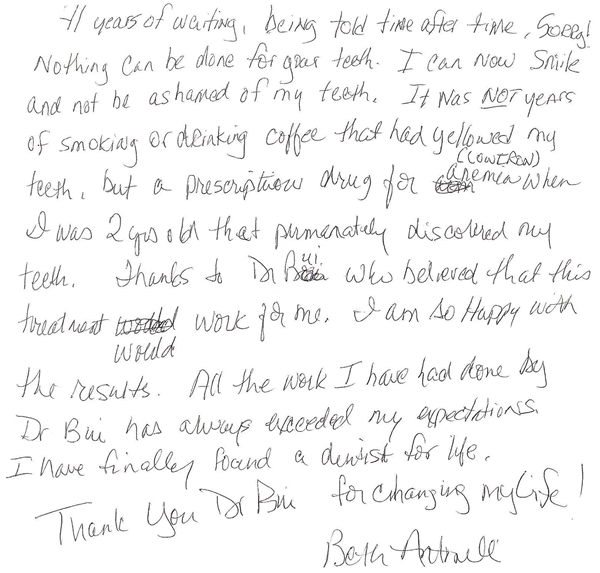 41 years of waiting, being told time after time, Sorry!
Nothing can be done for your teeth. I can now smile
and not be ashamed of my teeth. It was NOT years
of smoking or drinking coffee that had yellowed my
(LOW IRON)
teeth, but a prescription drug for anemea when
I was 2 yrs old that permanately discolored my
teeth. Thanks to Dr Bui who believed that this
treatment work for me. I am so Happy with
would
the results. All the work I have had done by
Dr Bui has always exceeded my expectations.
I have finally found a dentist for life.
Thank You Dr Bui for changing my life!
Beth